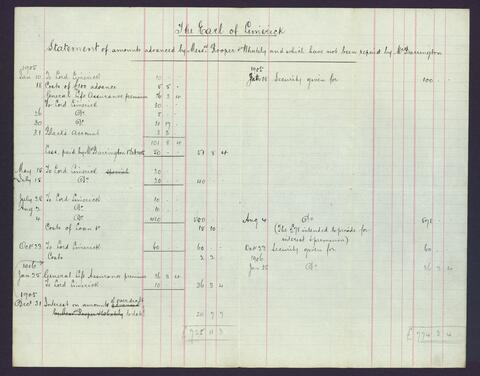 The Earl of Limerick
Statement of amounts advanced by Messrs Rooper & Whately and which have not been repaid by Mr Darrington
1905
Jan 10 To Lord Limerick 10 . .
18 Costs of £100 advance 5 5 .
General Life Assurance premium 36 3 4
To Lord Limerick 20 . .
26 Do 5 . .
30 Do 21 19 .
31 Account 3 3 .
101 8 4
Less, paid by Mr Darrington 50 . . 51 8 4
May 18 To Lord Limerick 20 . .
July 18 Do 20 . . 40 . .
July 28 To Lord Limerick 10 . .
Aug 2 Do 10 . .
4 Do
Costs of Loan 15 10
Oct 23 To Lord Limerick 60 . . 60 . .
Costs 2 2 .
1906
Jan 25 General Life Assurance premium 26 3 4
To Lord Limerick 10 . . 36 3 4
1905
Dec 31 Interest on amounts of overdraft
to date 20 9 7
£725 11 3
1905
Security given for 100 . .
Aug 4 Do
(The £71 intended to provide for
interest & premium)
Oct 23 Security given for 60 . .
1906
Jan 25 Do 36 3 4
£774 3 4